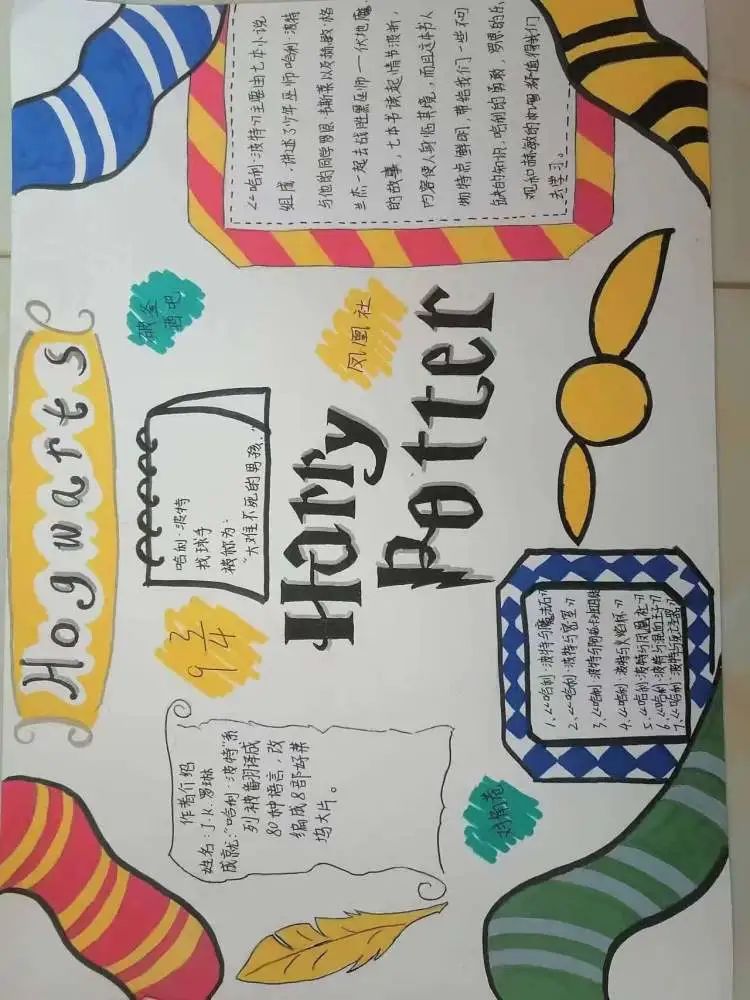 Hogwarts
作者介绍
姓名:J·K·罗琳
成就:"哈利·波特"系
列被翻译成
80种语言,改
编成8部好莱
坞大片。
9 3/4
哈利·波特
找球手
被称为:
"大难不死的男孩."
破釜酒吧
《哈利·波特》主要由七本小说,
组成,讲述了少年巫师哈利·波特
与他的同学罗恩·韦斯莱以及赫敏·格
兰杰一起去战胜黑巫师一伏地魔
的故事,七本书读起情节波折,
内容使人身临其境,而且这本书人
物特点鲜明,带给我们一些不可
缺的知识,哈利的勇敢,罗恩的乐
观和赫敏的机智都值得我们
去学习。
Harry
Potter
凤凰社
对角巷
1、《哈利·波特与魔法石》
2、《哈利·波特与密室》
3、《哈利·波特与阿兹卡班囚徒
4、《哈利·波特与火焰杯》
5、《哈利·波特与凤凰社》
6、《哈利·波特与混血王子》
7、《哈利·波特与死亡圣器》